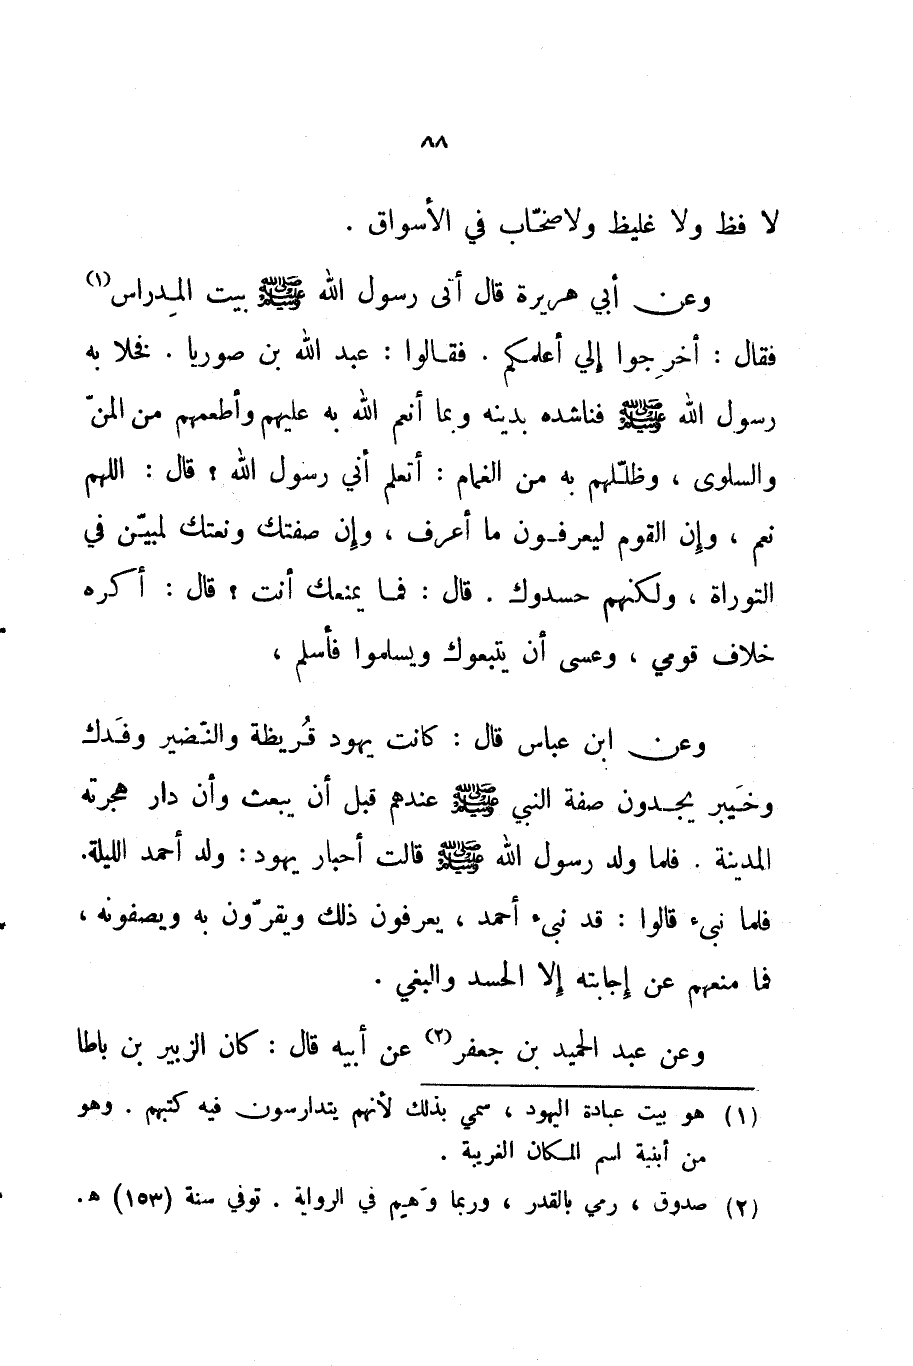 ٨٨
لا فظ ولا غليظ ولا صخّاب في الأسواق .
وعن أبي هريرة قال أتى رسول الله ﷺ بيت المِدراس(١)
فقال : أخرِجوا إلي أعلمكم . فقالوا : عبد الله بن صوريا . فخلا به
رسول الله ﷺ فناشده بدينه وبما أنعم الله به عليهم وأطعمهم من المنّ
والسلوى ، وظلّلهم به من الغمام : أتعلم أني رسول الله ؟ قال : اللهم
نعم ، وإن القوم ليعرفون ما أعرف ، وإن صفتك ونعتك لمبيّن في
التوراة ، ولكنهم حسدوك . قال : فما يمنعك أنت ؟ قال : أكره
خلاف قومي ، وعسى أن يتبعوك ويسلموا فأسلم ،
وعن ابن عباس قال : كانت يهود قُريظة والنّضير وفَدك
وخَيبر يجدون صفة النبي ﷺ عندهم قبل أن يبعث وأن دار هجرته
المدينة . فلما ولد رسول الله ﷺ قالت أحبار يهود : ولد أحمد الليلة.
فلما نبىء قالوا : قد نبىء أحمد ، يعرفون ذلك ويقرّون به ويصفونه ،
فما منعهم عن إجابته إلا الحسد والبغي .
وعن عبد الحميد بن جعفر(٢) عن أبيه قال : كان الزبير بن باطا
(١) هو بيت عبادة اليهود ، سمي بذلك لأنهم يتدارسون فيه كتبهم . وهو
من أبنية اسم المكان الغريبة .
(٢) صدوق ، رمي بالقدر ، وربما وَهِيم في الرواية . توفي سنة (١٥٣) هـ.